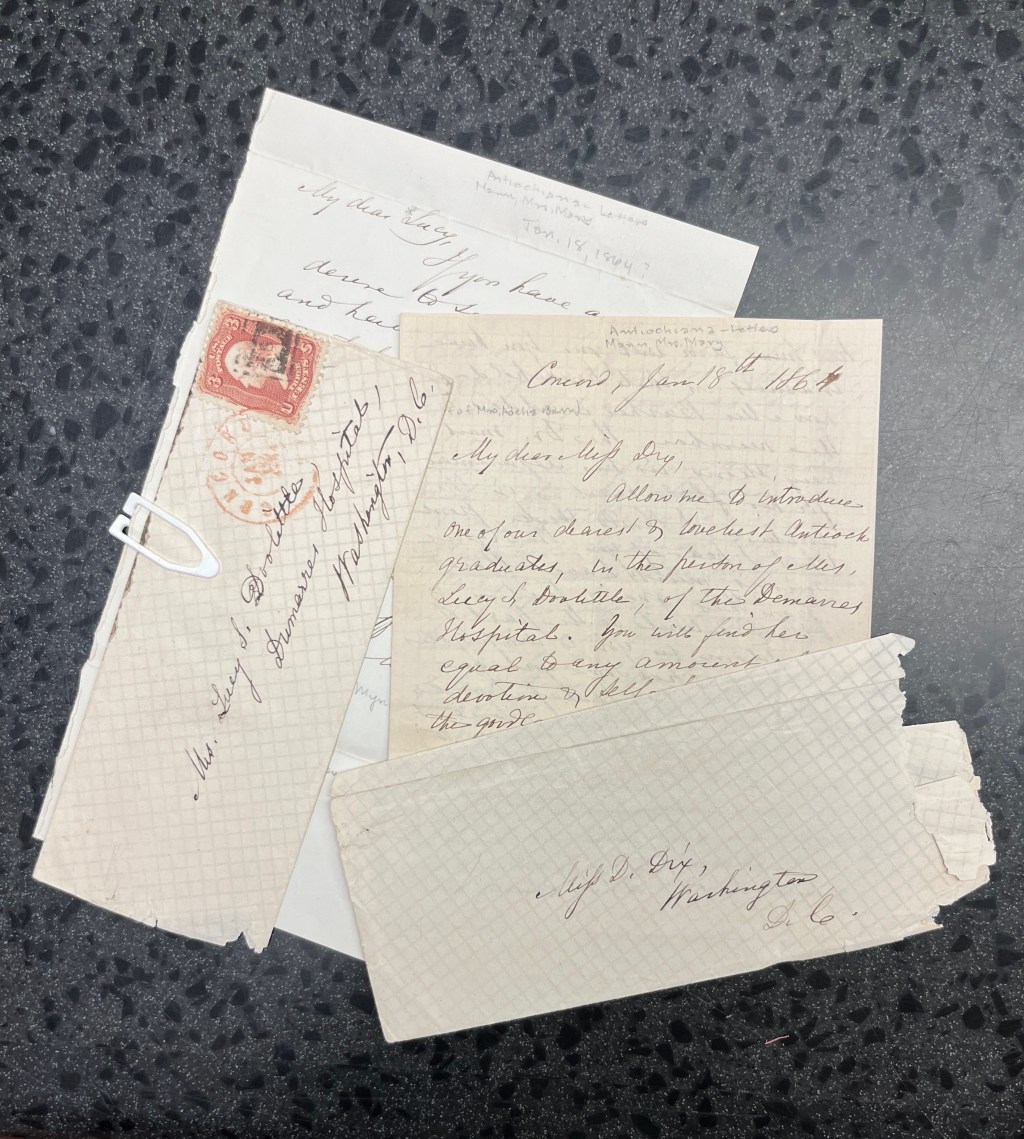 Antiochiana - Letters
Mann, Mrs. Mary
Jan. 18, 1864?
My dear Lucy,
If you have a
desire to
and have
Antiochiana - Letters
Mann, Mrs. Mary
Concord, Jan 18th 1864
My dear Miss Dix,
Allow me to introduce
one of our dearest & loveliest Antioch
graduates, in the person of Mrs.
Lucy S. Doolittle, of the Demarres
Hospital. You will find her
equal to any amount
devotion & self
the goode
CONCORD
JAN
Mrs. Lucy S. Doolittle
Dremarres Hospital,
Washington, D. C.
Miss D. Dix,
Washington
D. C.